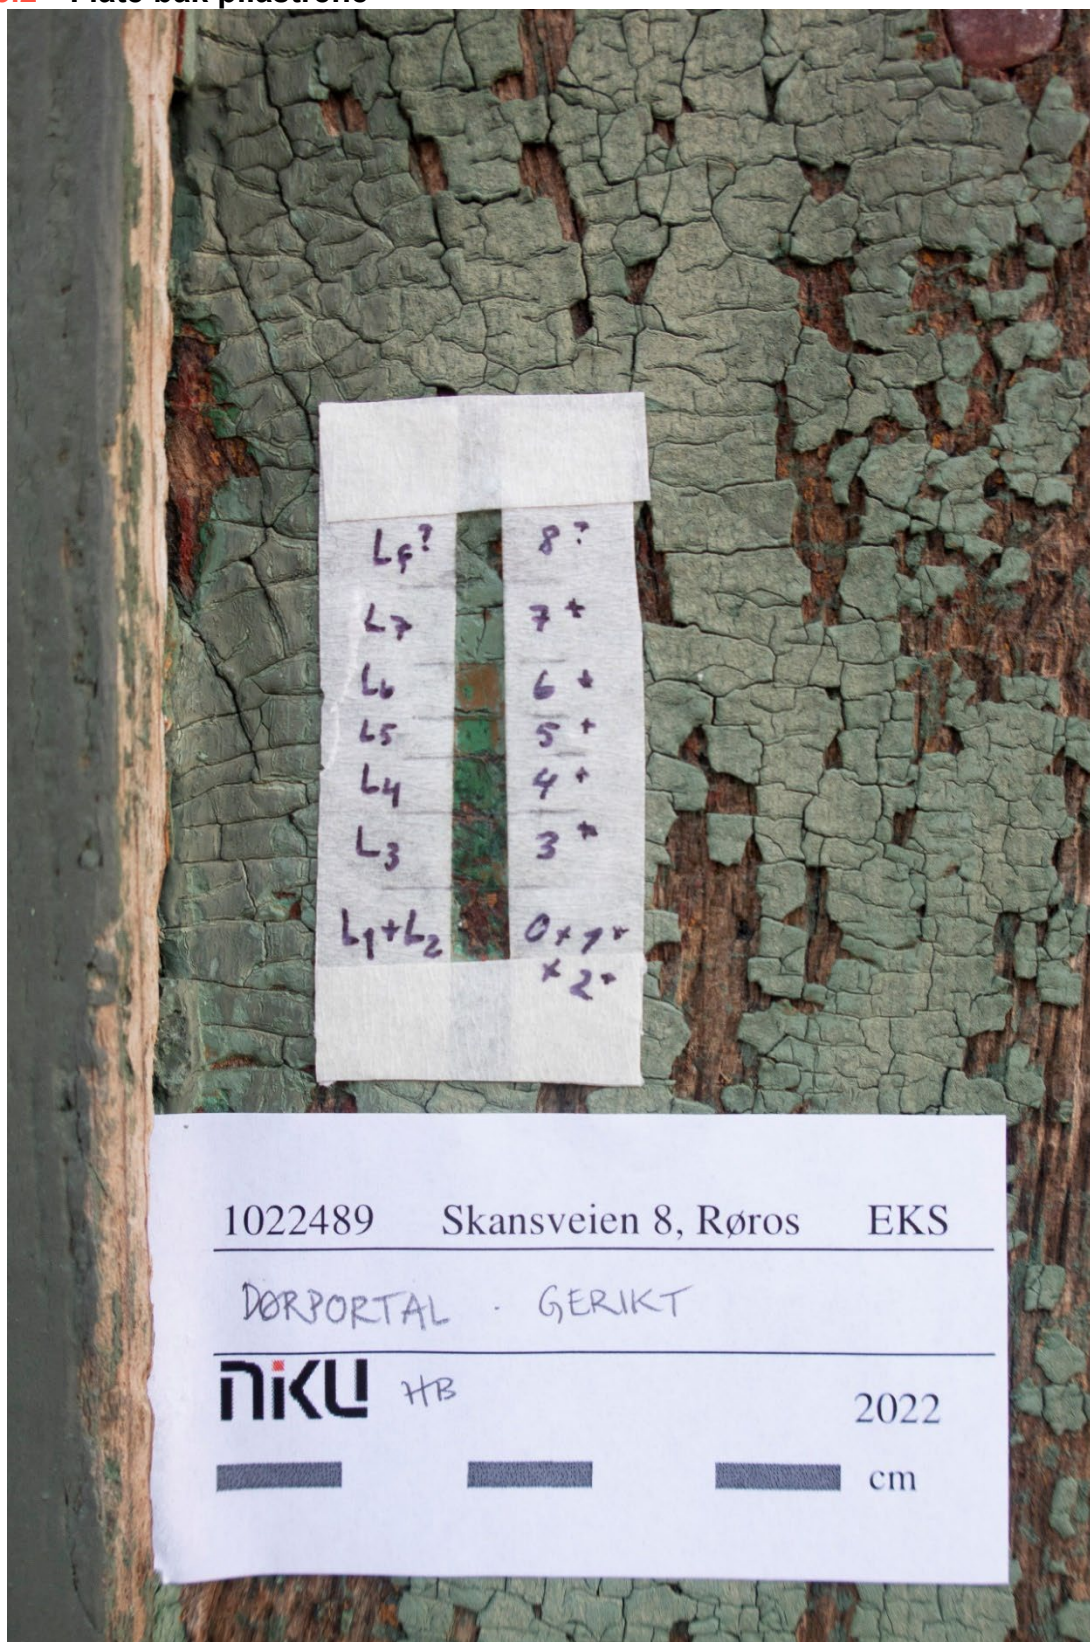 Plate bak pilastrene
L8? 8?
L7 7+
L6 6+
L5 5+
L4 4+
L3 3+
L1+L2 0+1+
+2+
1022489 Skansveien 8, Røros EKS
DØRPORTAL . GERIKT
NIKU HB 2022
cm